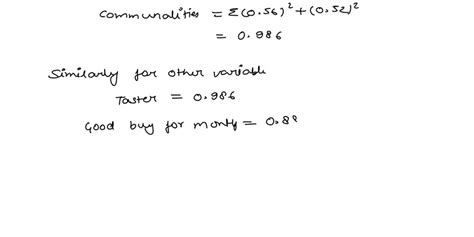 Communalities = Σ(0.56)² + (0.52)²
= 0.986
Similarly for other variable
Taster = 0.986
Good buy for money = 0.88